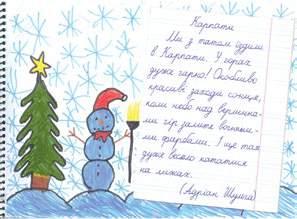 Карпати
Ми з татом їздили
в Карпати. У горах
дуже гарно! Особливо
красиві заходи сонця,
коли небо над вершина-
ми гір залите вогняни-
ми фарбами. І ще там
дуже весело кататися
на лижах.
(Адріан Шуига)